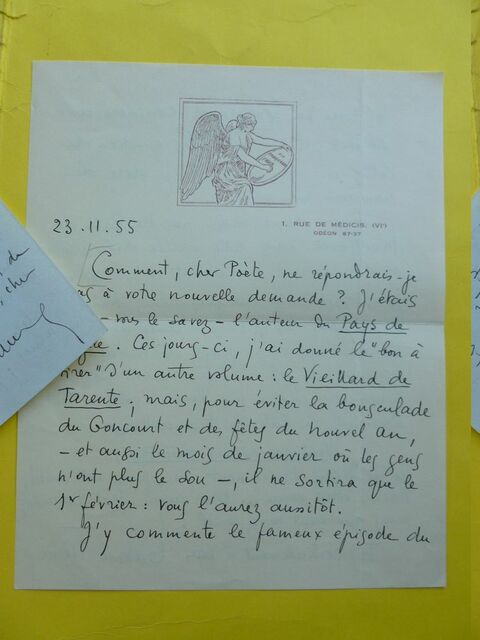 1, RUE DE MÉDICIS, (VIᵉ)
ODÉON 67-37
23.11.55
Comment, cher Poète, ne répondrais-je
à votre nouvelle demande ? J'étais
- vous le savez - l'auteur du Pays de
Ces jours-ci, j'ai donné le "bon à
tirer" d'un autre volume : le Vieillard de
Tarente ; mais, pour éviter la bousculade
du Goncourt et des fêtes du nouvel an,
- et aussi le mois de janvier où les gens
n'ont plus le sou -, il ne sortira que le
1er février : vous l'aurez aussitôt.
J'y commente le fameux épisode du
de
cher